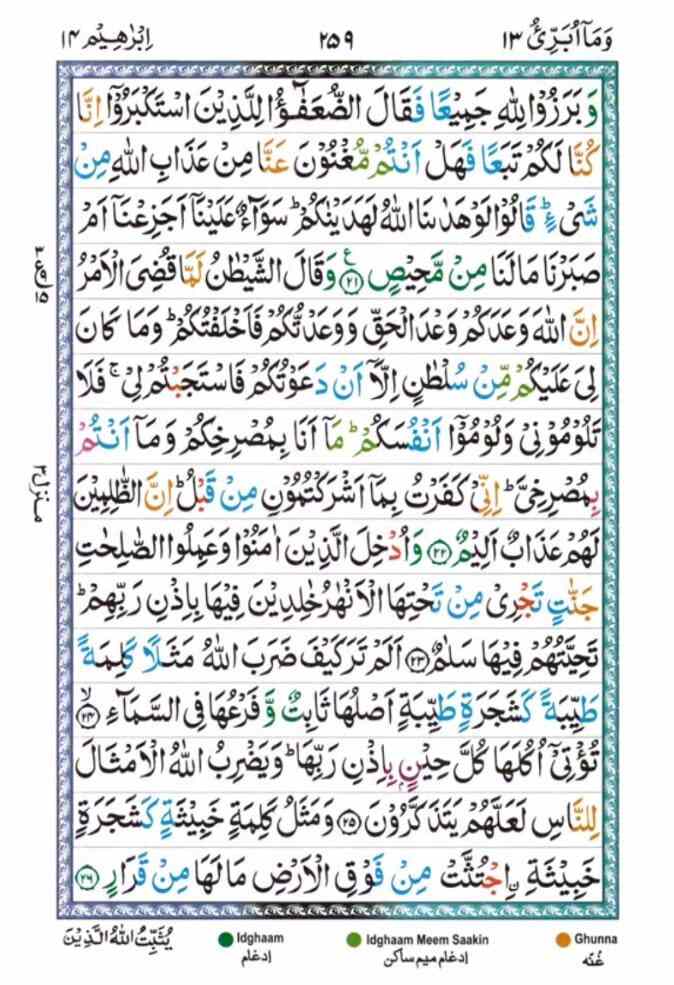 وَمَآ اُبَرِّئُ ۱۳
۲۵۹
اِبْرٰهِيْم ۱۴
وَ بَرَزُوْا لِلّٰهِ جَمِيْعًا فَقَالَ الضُّعَفٰٓؤُا لِلَّذِيْنَ اسْتَكْبَرُوْۤا اِنَّا
كُنَّا لَكُمْ تَبَعًا فَهَلْ اَنْتُمْ مُّغْنُوْنَ عَنَّا مِنْ عَذَابِ اللّٰهِ مِنْ
شَيْءٍ ؕ قَالُوْا لَوْ هَدٰىنَا اللّٰهُ لَهَدَيْنٰكُمْ ؕ سَوَآءٌ عَلَيْنَاۤ اَجَزِعْنَاۤ اَمْ
صَبَرْنَا مَا لَنَا مِنْ مَّحِيْصٍ ﴿۲۱﴾ وَقَالَ الشَّيْطٰنُ لَمَّا قُضِيَ الْاَمْرُ
اِنَّ اللّٰهَ وَعَدَكُمْ وَعْدَ الْحَقِّ وَوَعَدْتُّكُمْ فَاَخْلَفْتُكُمْ ؕ وَمَا كَانَ
لِيَ عَلَيْكُمْ مِّنْ سُلْطٰنٍ اِلَّاۤ اَنْ دَعَوْتُكُمْ فَاسْتَجَبْتُمْ لِيْ ۚ فَلَا
تَلُوْمُوْنِيْ وَلُوْمُوْۤا اَنْفُسَكُمْ ؕ مَاۤ اَنَا بِمُصْرِخِكُمْ وَمَاۤ اَنْتُمْ
بِمُصْرِخِيَّ ؕ اِنِّيْ كَفَرْتُ بِمَاۤ اَشْرَكْتُمُوْنِ مِنْ قَبْلُ ؕ اِنَّ الظّٰلِمِيْنَ
لَهُمْ عَذَابٌ اَلِيْمٌ ﴿۲۲﴾ وَاُدْخِلَ الَّذِيْنَ اٰمَنُوْا وَعَمِلُوا الصّٰلِحٰتِ
جَنّٰتٍ تَجْرِيْ مِنْ تَحْتِهَا الْاَنْهٰرُ خٰلِدِيْنَ فِيْهَا بِاِذْنِ رَبِّهِمْ ؕ
تَحِيَّتُهُمْ فِيْهَا سَلٰمٌ ﴿۲۳﴾ اَلَمْ تَرَ كَيْفَ ضَرَبَ اللّٰهُ مَثَلًا كَلِمَةً
طَيِّبَةً كَشَجَرَةٍ طَيِّبَةٍ اَصْلُهَا ثَابِتٌ وَّ فَرْعُهَا فِي السَّمَآءِ ﴿۲۴﴾
تُؤْتِيْۤ اُكُلَهَا كُلَّ حِيْنٍۭ بِاِذْنِ رَبِّهَا ؕ وَيَضْرِبُ اللّٰهُ الْاَمْثَالَ
لِلنَّاسِ لَعَلَّهُمْ يَتَذَكَّرُوْنَ ﴿۲۵﴾ وَمَثَلُ كَلِمَةٍ خَبِيْثَةٍ كَشَجَرَةٍ
خَبِيْثَةِ ِۨاجْتُثَّتْ مِنْ فَوْقِ الْاَرْضِ مَا لَهَا مِنْ قَرَارٍ ﴿۲۶﴾
منزل ۳
يُثَبِّتُ اللّٰهُ الَّذِيْنَ
Idghaam
ادغام
Idghaam Meem Saakin
ادغام ميم ساكن
Ghunna
غُنّه